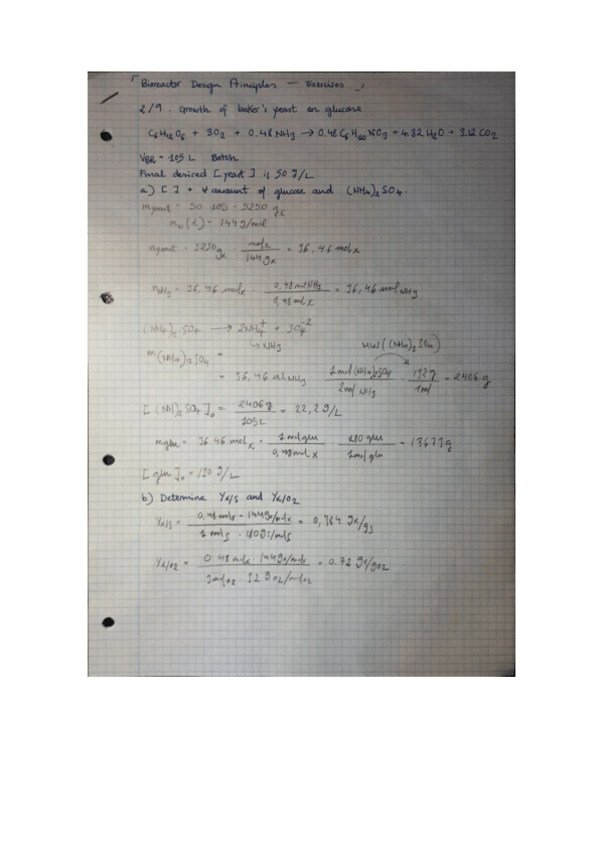 Bioreactor Design Principles — Exercises.
2/9. Growth of baker's yeast on glucose
C6H12O6 + 3O2 + 0.48 NH3 → 0.48 C6H10NO3 + 4.32 H2O + 3.12 CO2
VBR = 105 L Batch
Final desired [yeast] is 50 g/L.
a) [ ] + ∀ amount of glucose and (NH4)2 SO4.
myeast = 50 · 105 = 5250 gx
mw(x) = 144 g/mol
nyeast = 5250 gx · molx / 144 gx = 36,46 molx
nNH3 = 36,46 molx · 0,48 mol NH3 / 0,48 molx = 36,46 mol NH3
(NH4)2 SO4 → 2NH4+ + SO4-2
↳ NH3 MW((NH4)2SO4)
m(NH4)2SO4 =
= 36,46 mol NH3 1 mol (NH4)2SO4 / 2 mol NH3 · 132 g / 1 mol = 2406 g
[(NH)2SO4]0 = 2406 g / 105 L = 22,9 g/L
mglu = 36.46 molx · 1 mol glu / 0,48 molx · 180 glu / 1 mol glu = 13673 g
[glu]0 = 130 g/L
b) Determine Yx/s and Yx/O2
Yx/s = 0,48 molx · 144 gx/molx / 1 mols · 180 gs/mols = 0,384 gx/gs
Yx/O2 = 0.48 molx · 144 gx/molx / 3 molO2 · 32 gO2/molO2 = 0.72 gx/gO2